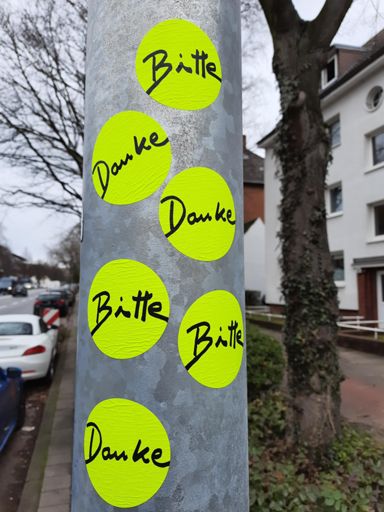 Bitte
Danke
Danke
Bitte
Bitte
Danke